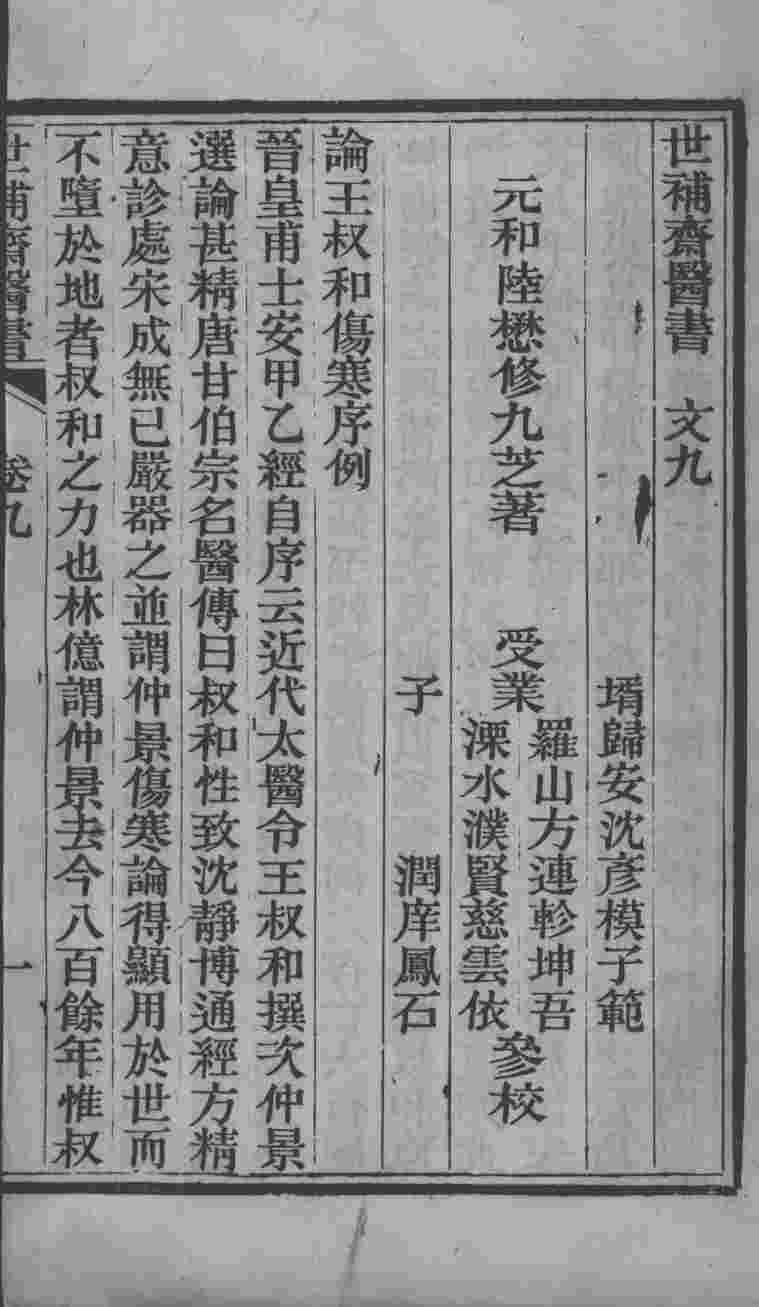 世補齋醫書 文九
壻歸安沈彥模子範
元和陸懋修九芝著 受業 羅山方連軫坤吾 參校
溧水濮賢慈雲依
子 潤庠鳳石
論王叔和傷寒序例
晉皇甫士安甲乙經自序云近代太醫令王叔和撰次仲景
選論甚精唐甘伯宗名醫傳曰叔和性致沈靜博通經方精
意診處宋成無已嚴器之並謂仲景傷寒論得顯用於世而
不墮於地者叔和之力也林億謂仲景去今八百餘年惟叔
世補齋醫書 卷九 一